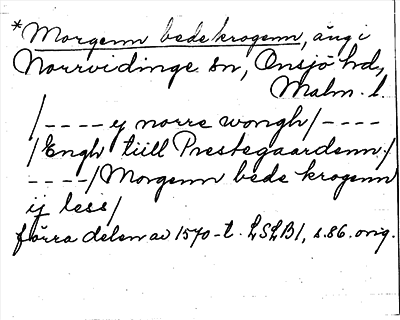 *Morgenn bede krogenn, äng i
Norrvidinge sn, Onsjö hd,
Malm. l.
/ - - - - y norre wongh / - - - -
/ Engh tiill Prestegaardenn /
- - - - / Morgenn bede krogenn
ij less /
förra delen av 1570-t. LSLB1, s. 86. orig.